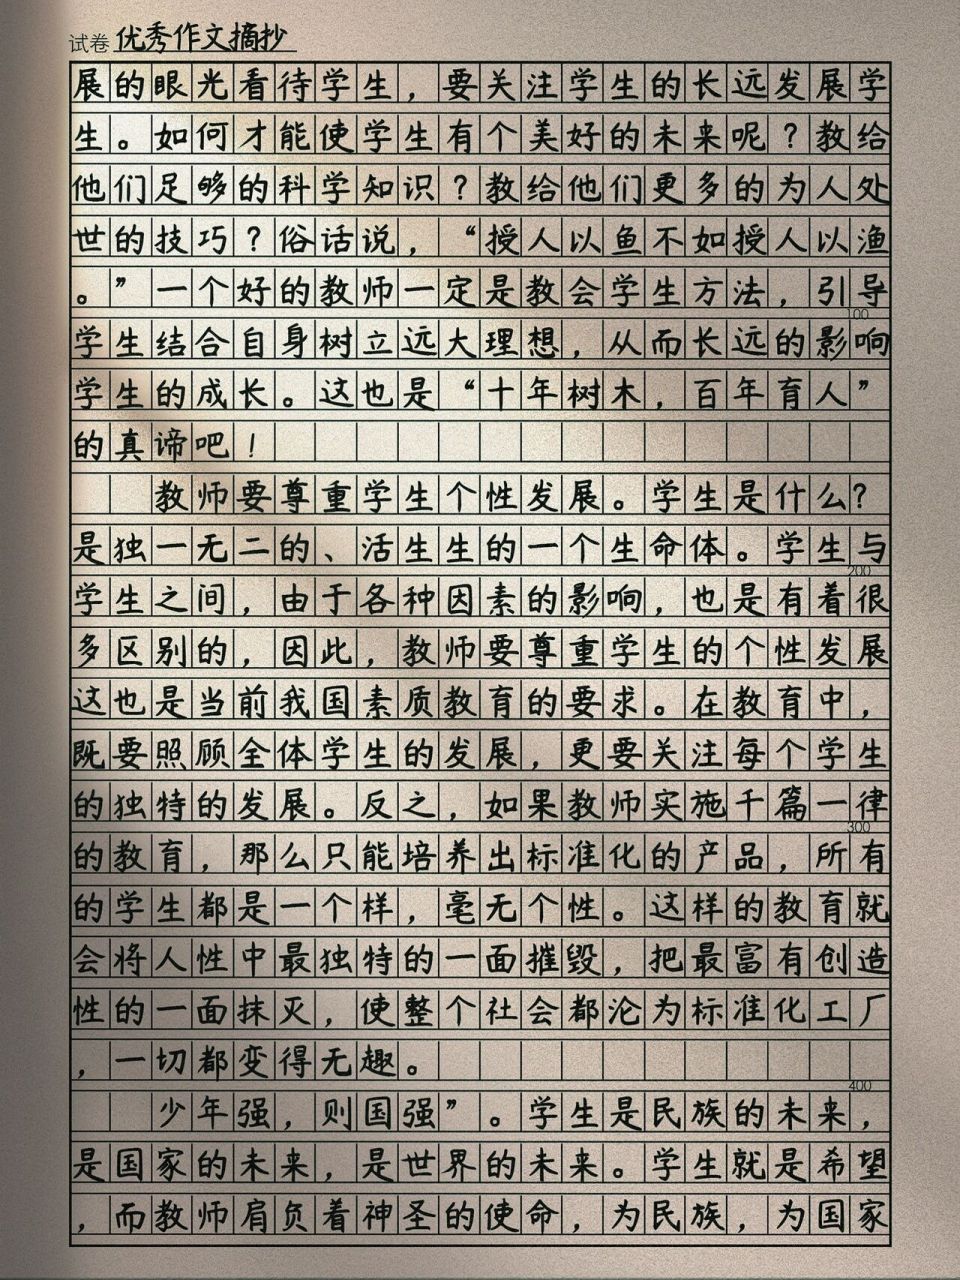 试卷 优秀作文摘抄
展的眼光看待学生，要关注学生的长远发展学
生。如何才能使学生有个美好的未来呢？教给
他们足够的科学知识？教给他们更多的为人处
世的技巧？俗话说，“授人以鱼不如授人以渔
。”一个好的教师一定是教会学生方法，引导
100
学生结合自身树立远大理想，从而长远的影响
学生的成长。这也是“十年树木，百年育人”
的真谛吧！
教师要尊重学生个性发展。学生是什么？
是独一无二的、活生生的一个生命体。学生与
200
学生之间，由于各种因素的影响，也是有着很
多区别的，因此，教师要尊重学生的个性发展
这也是当前我国素质教育的要求。在教育中，
既要照顾全体学生的发展，更要关注每个学生
的独特的发展。反之，如果教师实施千篇一律
300
的教育，那么只能培养出标准化的产品，所有
的学生都是一个样，毫无个性。这样的教育就
会将人性中最独特的一面摧毁，把最富有创造
性的一面抹灭，使整个社会都沦为标准化工厂
，一切都变得无趣。
400
少年强，则国强”。学生是民族的未来，
是国家的未来，是世界的未来。学生就是希望
，而教师肩负着神圣的使命，为民族，为国家